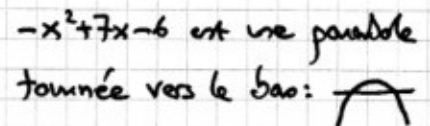 -x²+7x-6 est une parabole
tournée vers le bas: